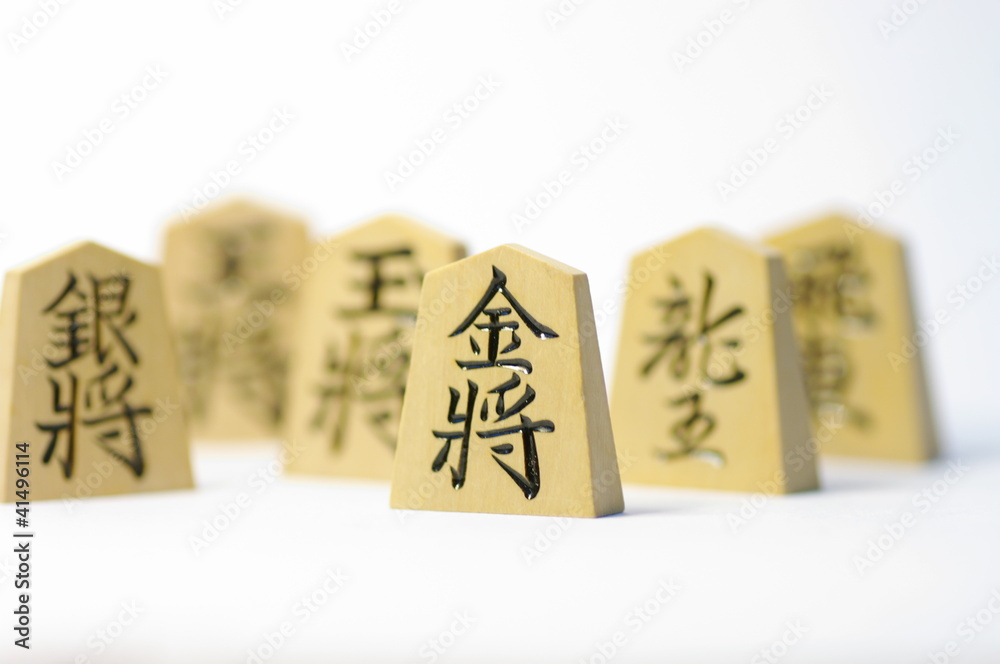 銀
將
玉
將
金
將
龍
王
飛
車
Adobe Stock | #41496114